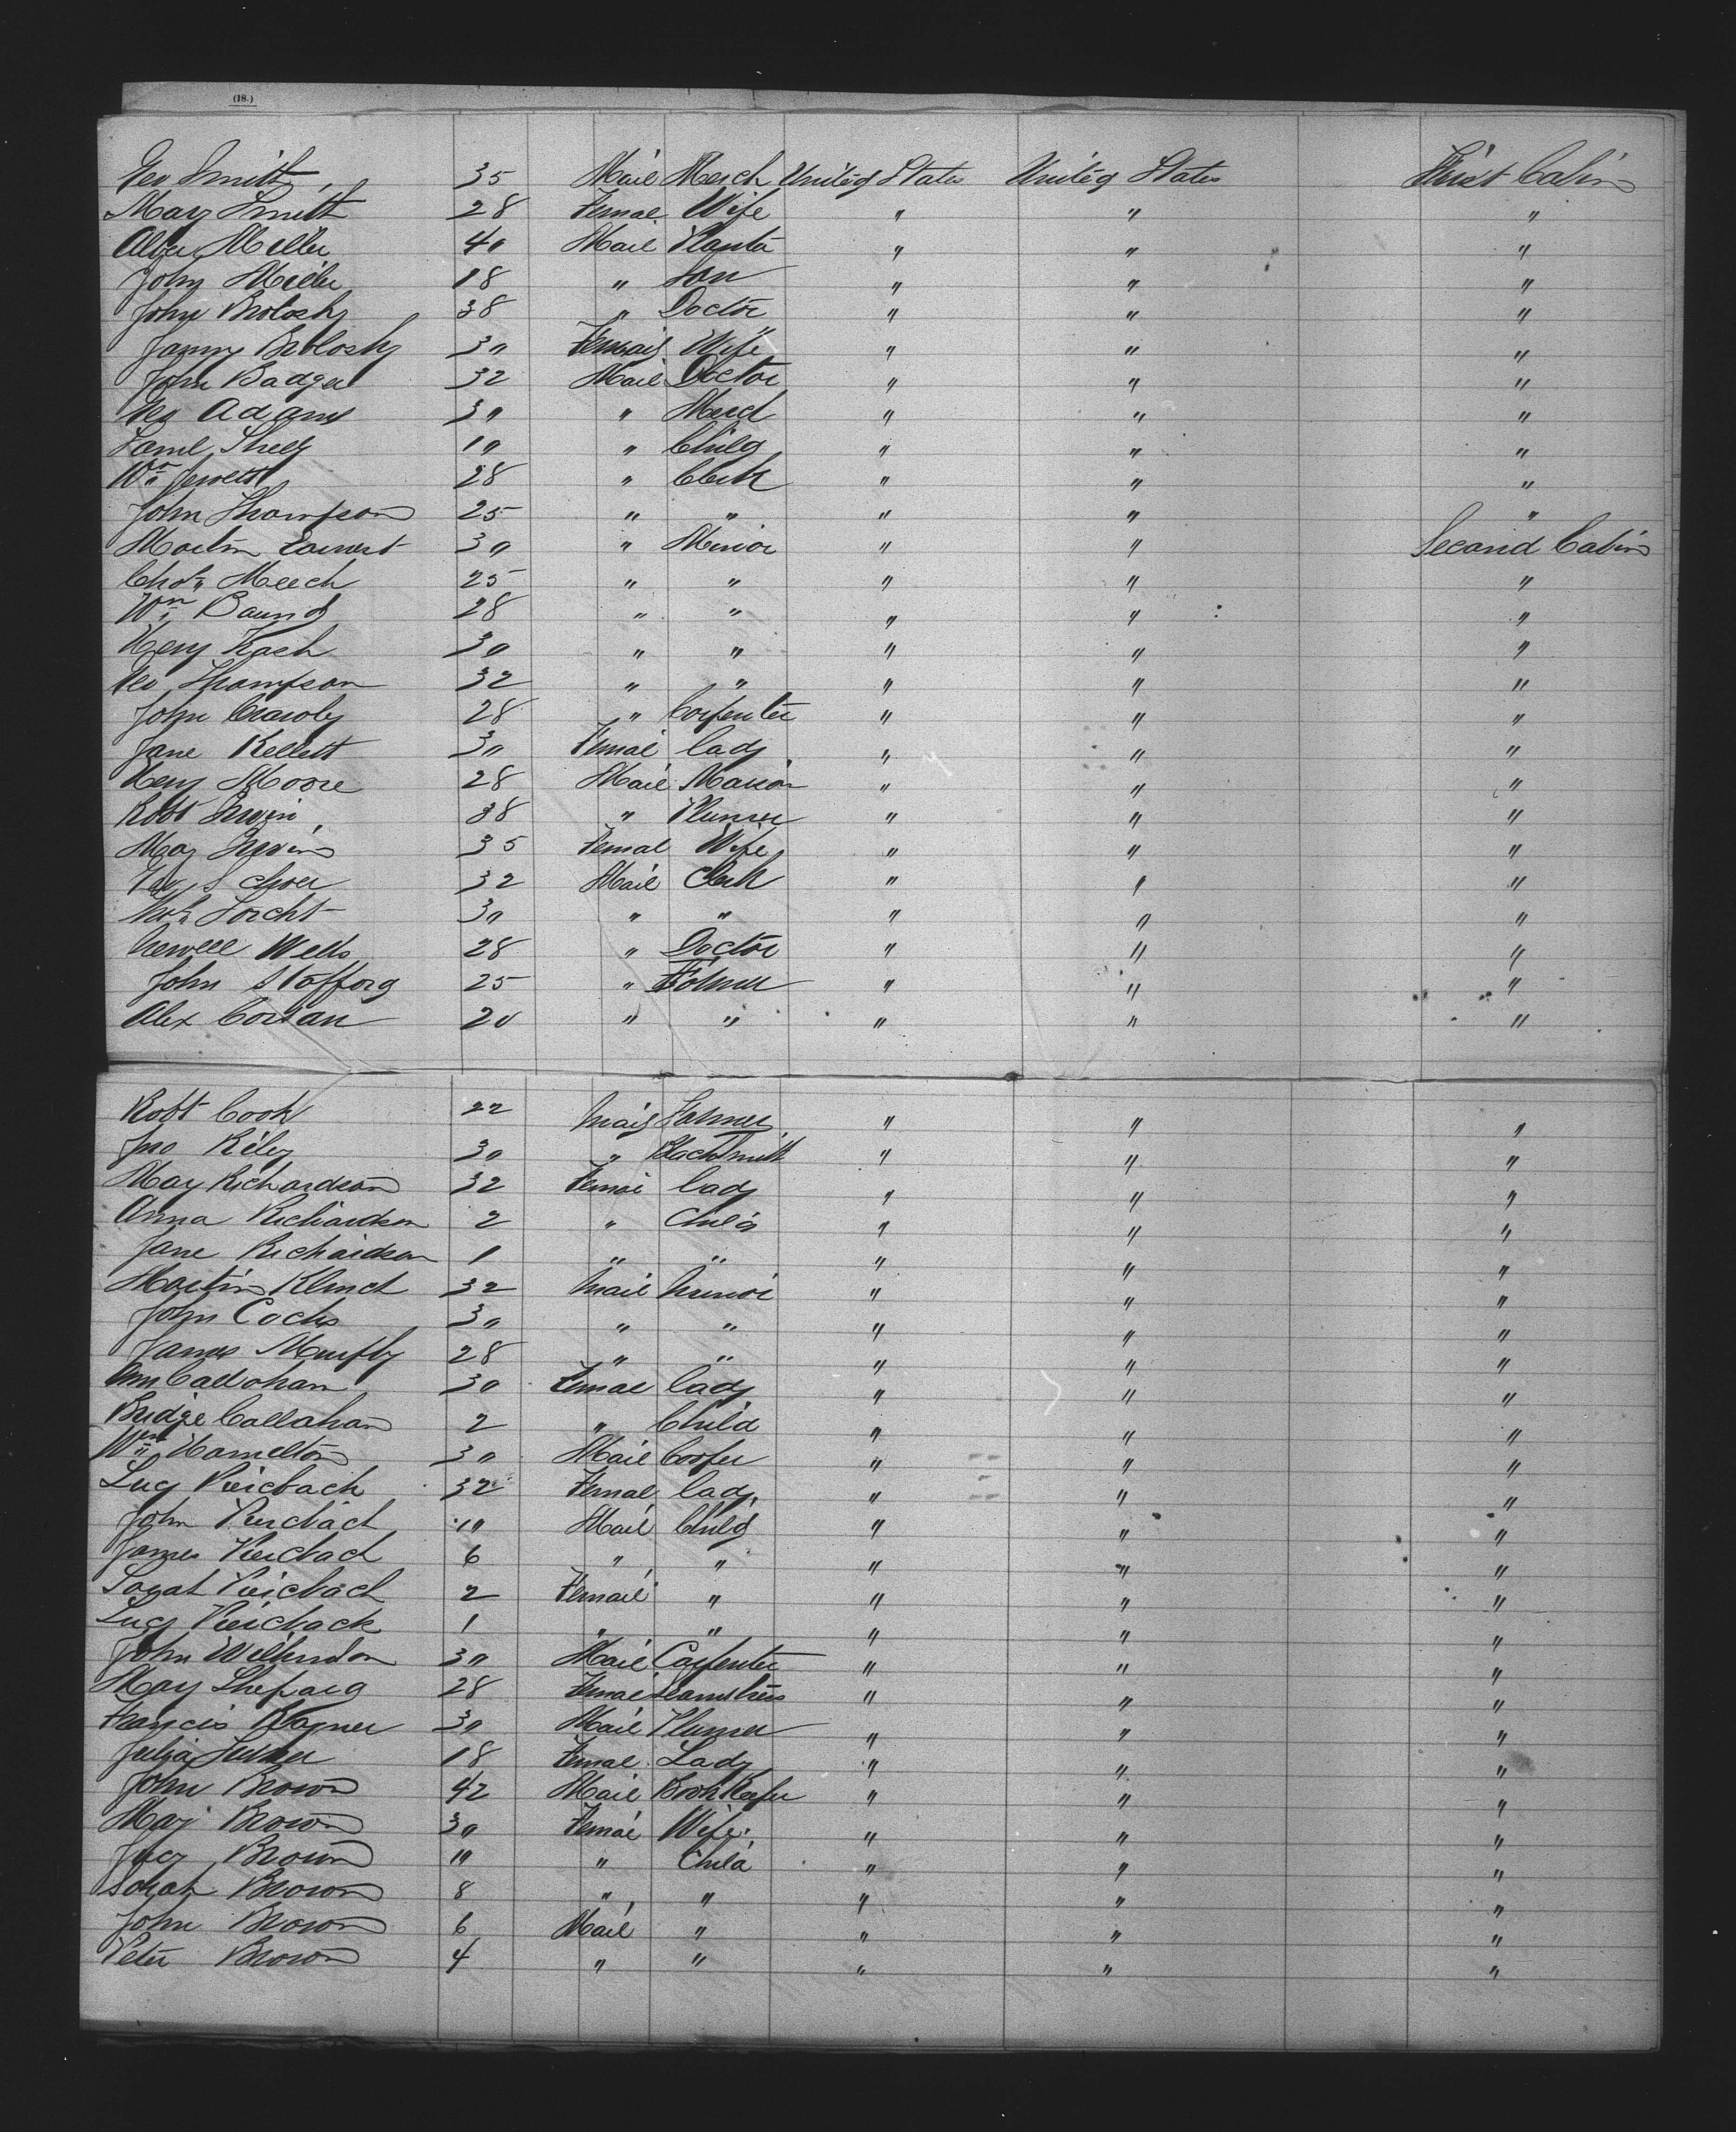 (18.)
Geo Smith 35 Mail Merch United States United States First Cabin
May Smith 28 Femal Wife " " "
Miller 40 Mail Planta " " "
John Miller 18 " Son " " "
John Brolosky 38 " Doctor " " "
Fanny Brolosky 30 Femail Wife " " "
John Badger 32 Mail Doctor " " "
Geo Adams 30 " Merch " " "
Saml 10 " Child " " "
Wm Jewett 28 " Clerk " " "
John Thompson 25 " " " " "
Martin 30 " Minor " " Second Cabin
Chas Meech 25 " " " " "
Wm Baund 28 " " " " "
Heny Kach 30 " " " " "
Geo Thompson 32 " " " " "
John Crawly 28 " Carpenter " " "
Jane Kellett 30 Femal Lady " " "
Heny Moore 28 Mail Mason " " "
Robt Irwin 38 " Plumer " " "
May Irwin 35 Femal Wife " " "
32 Mail Clerk " " "
30 " " " " "
Newell Wells 28 " Doctor " " "
John Stafford 25 " Farmer " " "
Alex 20 " " " " "
Robt Cook 22 Mail Farmer " " "
Jno Riley 30 " BlackSmith " " "
May Richardson 32 Femal Lady " " "
Anna Richardson 2 " Child " " "
Jane Richardson 1 " " " " "
Martin 32 Mail Minor " " "
John Cochs 30 " " " " "
James Murphy 28 " " " " "
Ann Callahan 30 Femal Lady " " "
Bridge Callahan 2 " Child " " "
Wm Hamelton 30 Mail Cooper " " "
Lucy Peirbach 32 Femal Lady " " "
John Peirbach 10 Mail Child " " "
James Peirbach 6 " " " " "
Sarah Peirbach 2 Femail " " " "
Lucy Peirback 1 " " " " "
John Wilkindon 30 Mail Carpenter " " "
May Shepard 28 Femal Seamstress " " "
Francis Wagner 30 Mail Plumer " " "
Julia 18 Femal Lady " " "
John Brown 42 Mail Book Keeper " " "
May Brown 30 Femal Wife " " "
Lucy Brown 10 " Child " " "
Sarah Brown 8 " " " " "
John Brown 6 Mail " " " "
Peter Brown 4 " " " " "